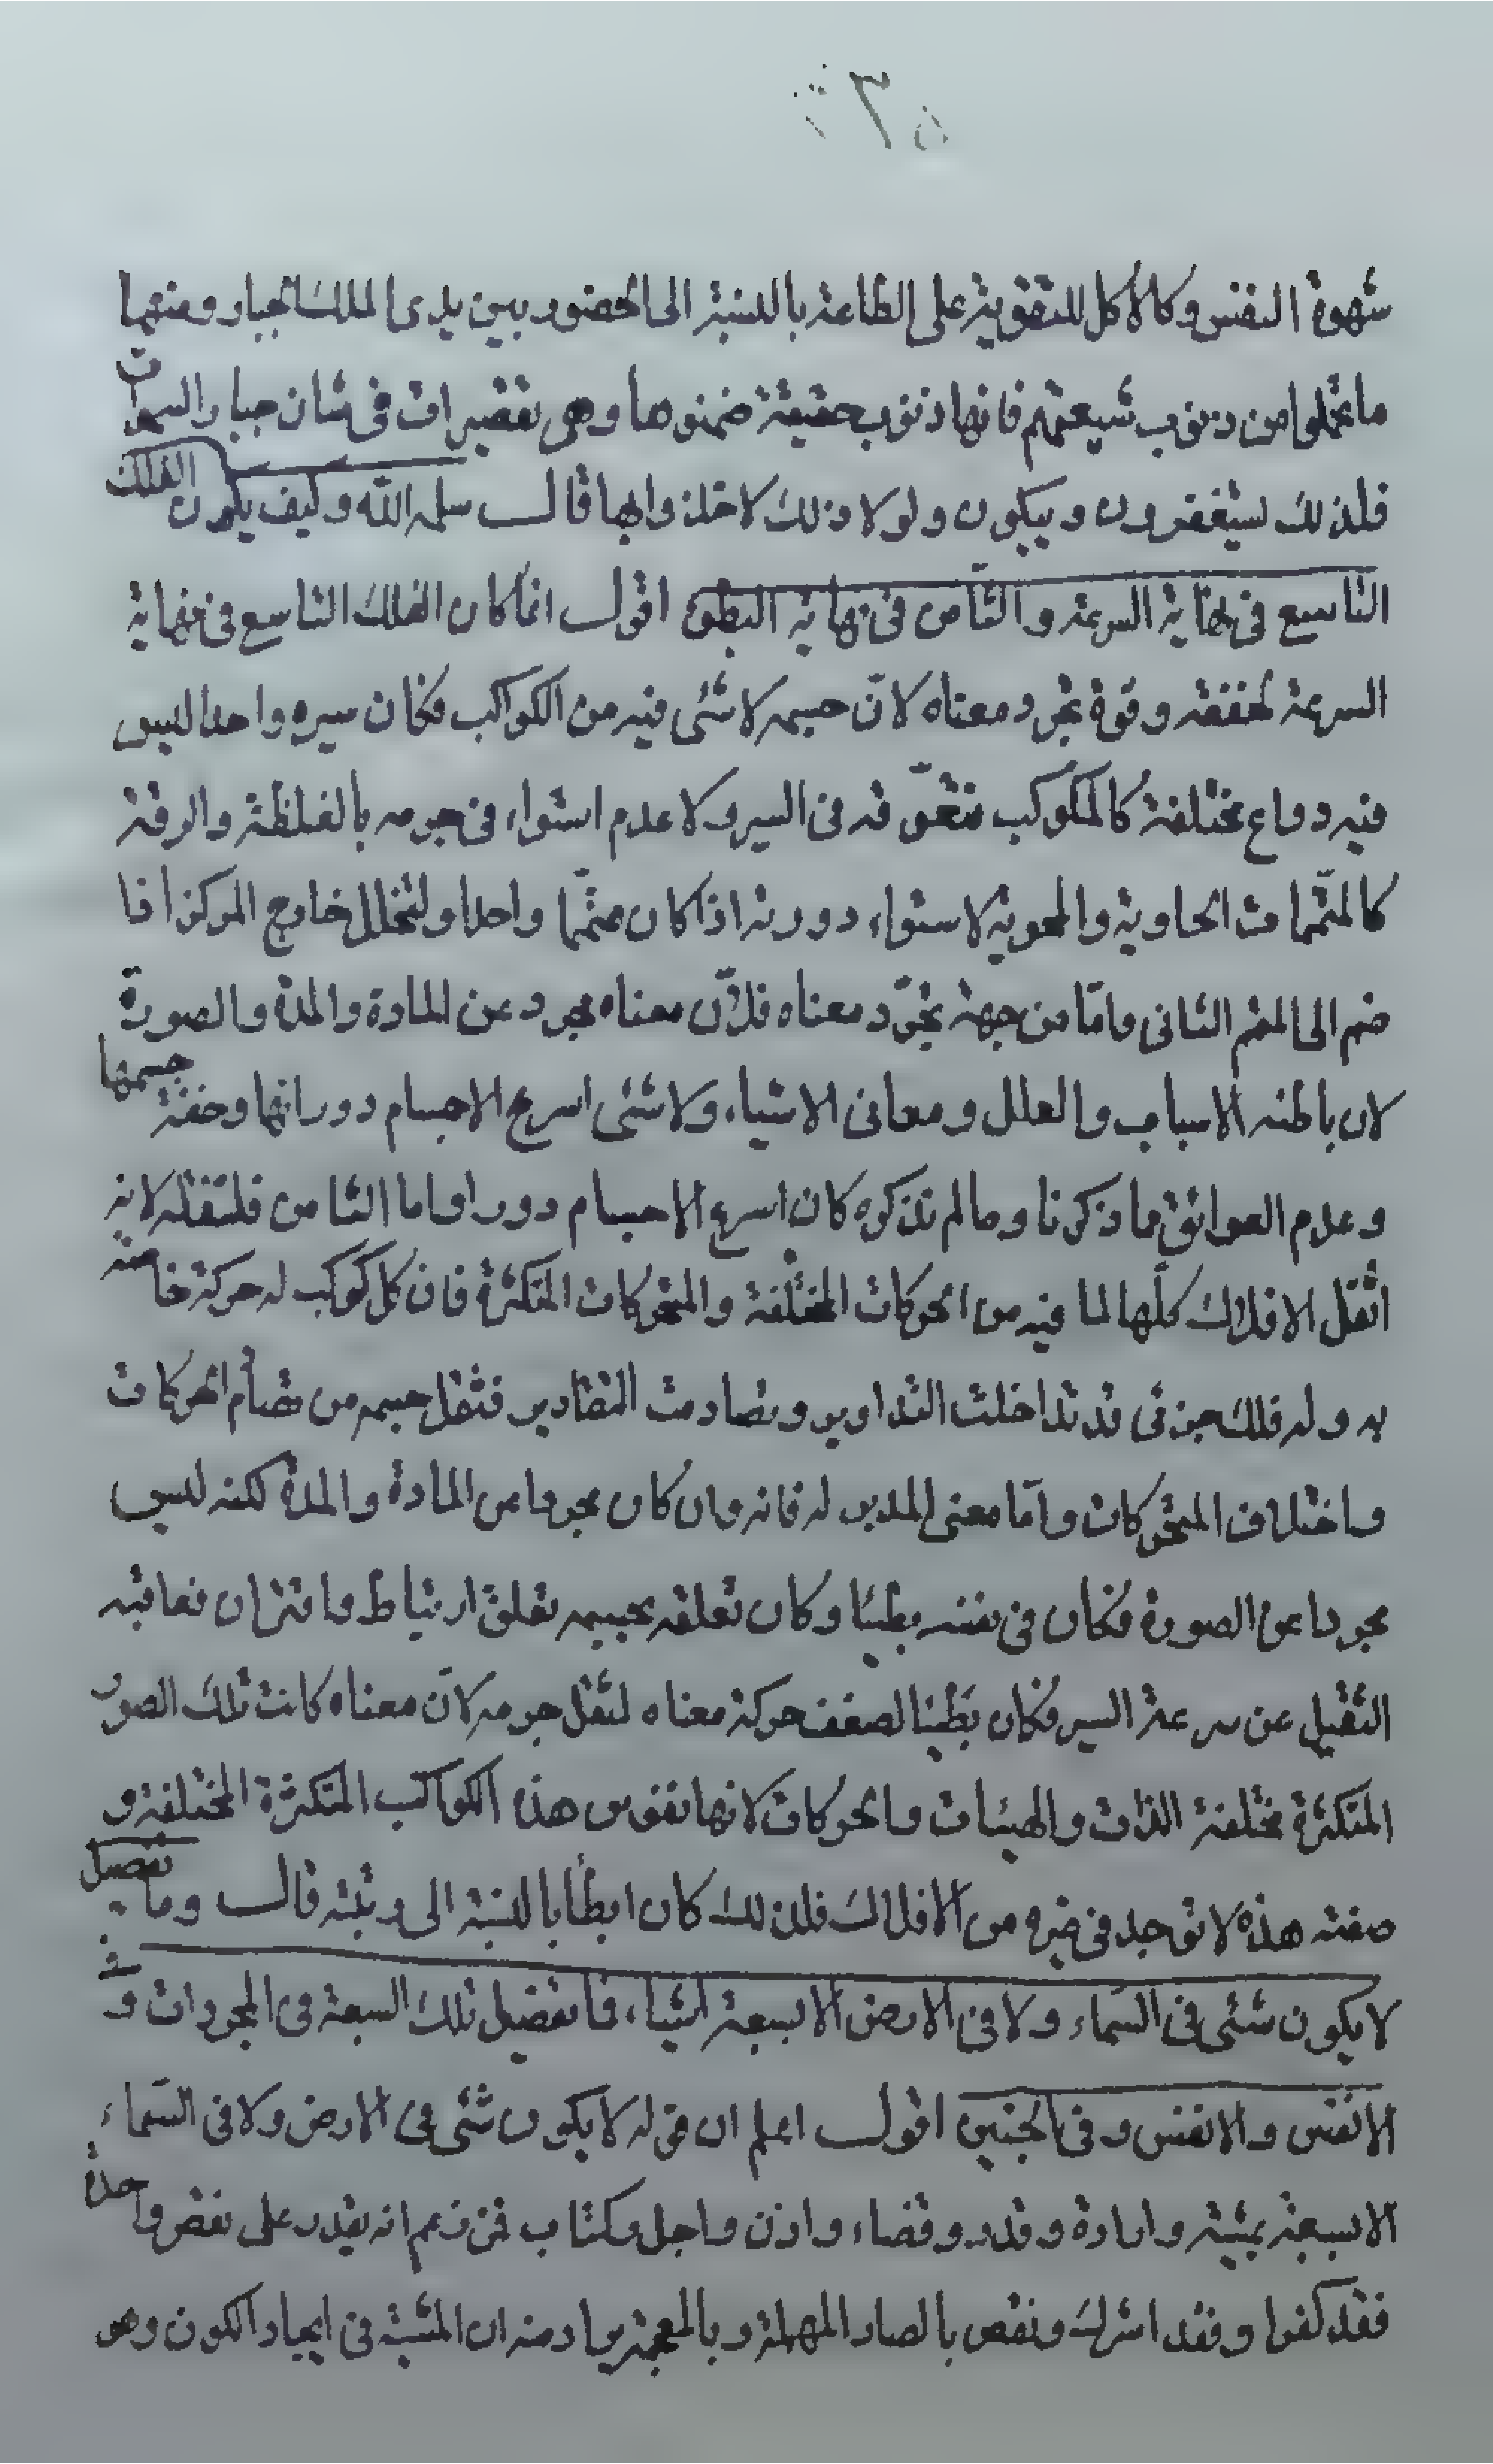 شهوة النفس وكالاكل للتقوية على الطاعة بالنسبة الى الحضور بين يدى الملك الجبار ومنهما
ما تحملوا من ذنوب شيعتهم فانها ذنوب حقيقة ضمنوها وهى تقصيرات فى شان جبار السموات
فلذلك يستغفرون ويبكون ولولا ذلك لاخلدوا لها قال سلمه الله وكيف يكون الفلك
التاسع فى نهاية السرعة والثامن فى نهاية البطؤ اقول انما كان الفلك التاسع فى نهاية
السرعة لخفته وقوة تجرد معناه لان جسمه لا شئى فيه من الكواكب فكان سيره واحدا ليس
فيه دواع مختلفة كالمكوكب متعوقه فى السير ولا عدم استواء فى جرمه بالغلظة والرقة
كالمتممات الحاوية والمحوية لاستواء دورته اذا كان متمما واحدا ولتخلل خارج المركز اذا
ضم الى المتم الثانى واما من جهة تجرد معناه فلان معناه مجرد عن المادة والمدة والصورة
لان باطنه الاسباب والعلل ومعانى الاشياء ولا شئى اسرع الاجسام دورانها وخفة جسمها
وعدم العوائق ما ذكرنا وما لم نذكره كان اسرع الاجسام دورا واما الثامن فلثقله لانه
اثقل الافلاك كلها لما فيه من الحركات المختلفة والمتحركات المتكثرة فان كل كوكب له حركة خاصة
به وله فلك جزئى قد تداخلت التداوير وتصادمت التقادير فثقل جسمه من تصادم الحركات
واختلاف المتحركات واما معنى المدبر له فانه وان كان مجردا عن المادة والمدة لكنه ليس
مجردا عن الصورة فكان فى نفسه بطيئا وكان تعلقه بجسمه تعلق ارتباط واقتران فعاقبه
الثقيل عن سرعة السير فكان بطيئا لضعف حركة معناه لثقل جرمه لان معناه كانت تلك الصور
المتكثرة مختلفة الذات والهيئات والحركات لانها نفوس هذه الكواكب المتكثرة المختلفة و
صفته هذه لا توجد فى غيره من الافلاك فلذلك كان ابطأ بالنسبة الى رتبته قال وما تفصيل
لا يكون شئى فى السماء ولا فى الارض الا بسبعة اشياء، فما تفصيل تلك السبعة فى المجردات و فى
الانفس والانفس وفى الجنين اقول اعلم ان قوله لا يكون شئى فى الارض ولا فى السماء
الا بسبعة بمشية وارادة وقدر وقضاء واذن واجل وكتاب فمن زعم انه يقدر على نقص واحدة
فقد كفر او فقد اشرك ونقص بالصاد المهملة وبالمعجمة يراد منه ان المشية فى ايجاد الكون وهو